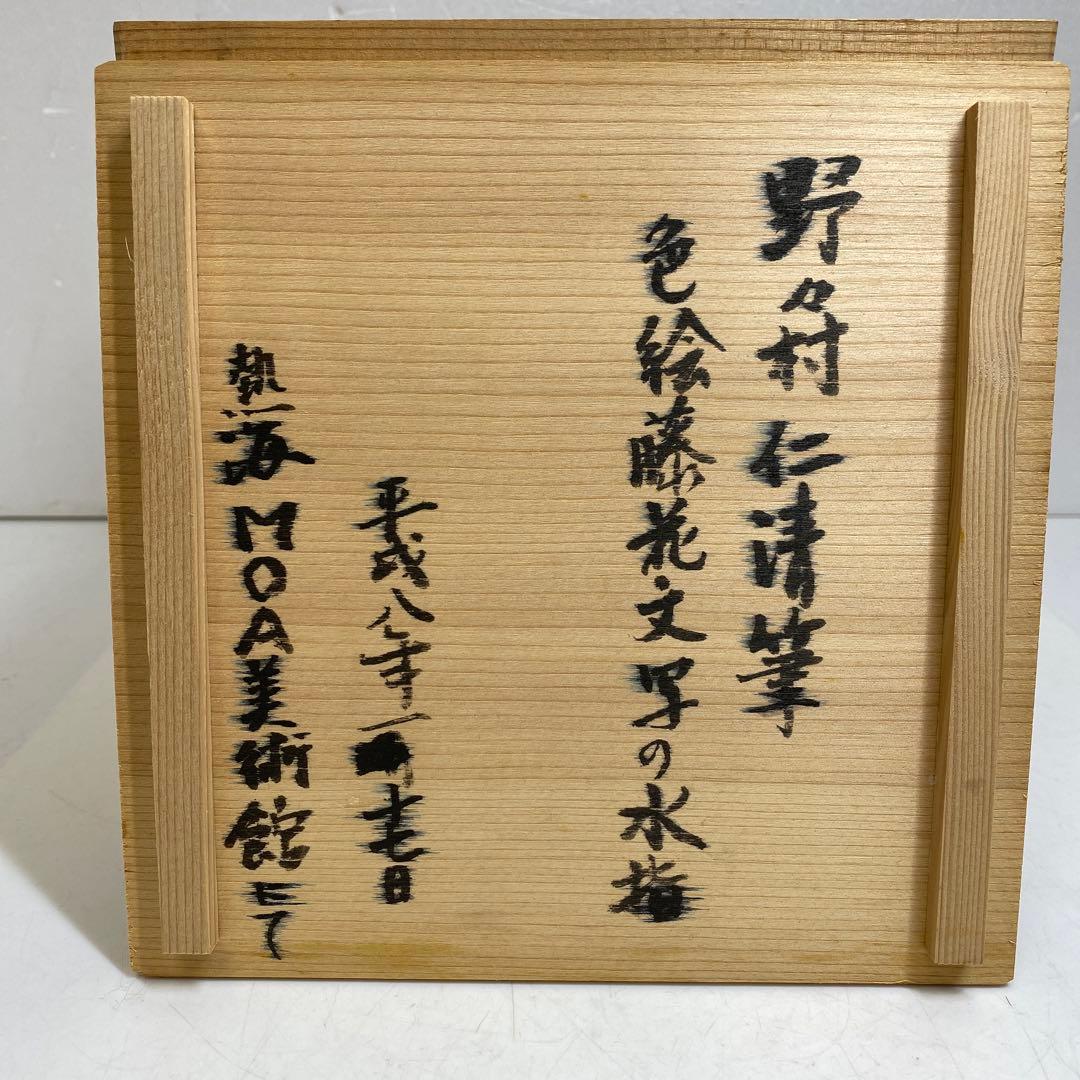 野々村仁清筆
色絵藤花文写の水指
平成八年一月十七日
熱海MOA美術館ニテ